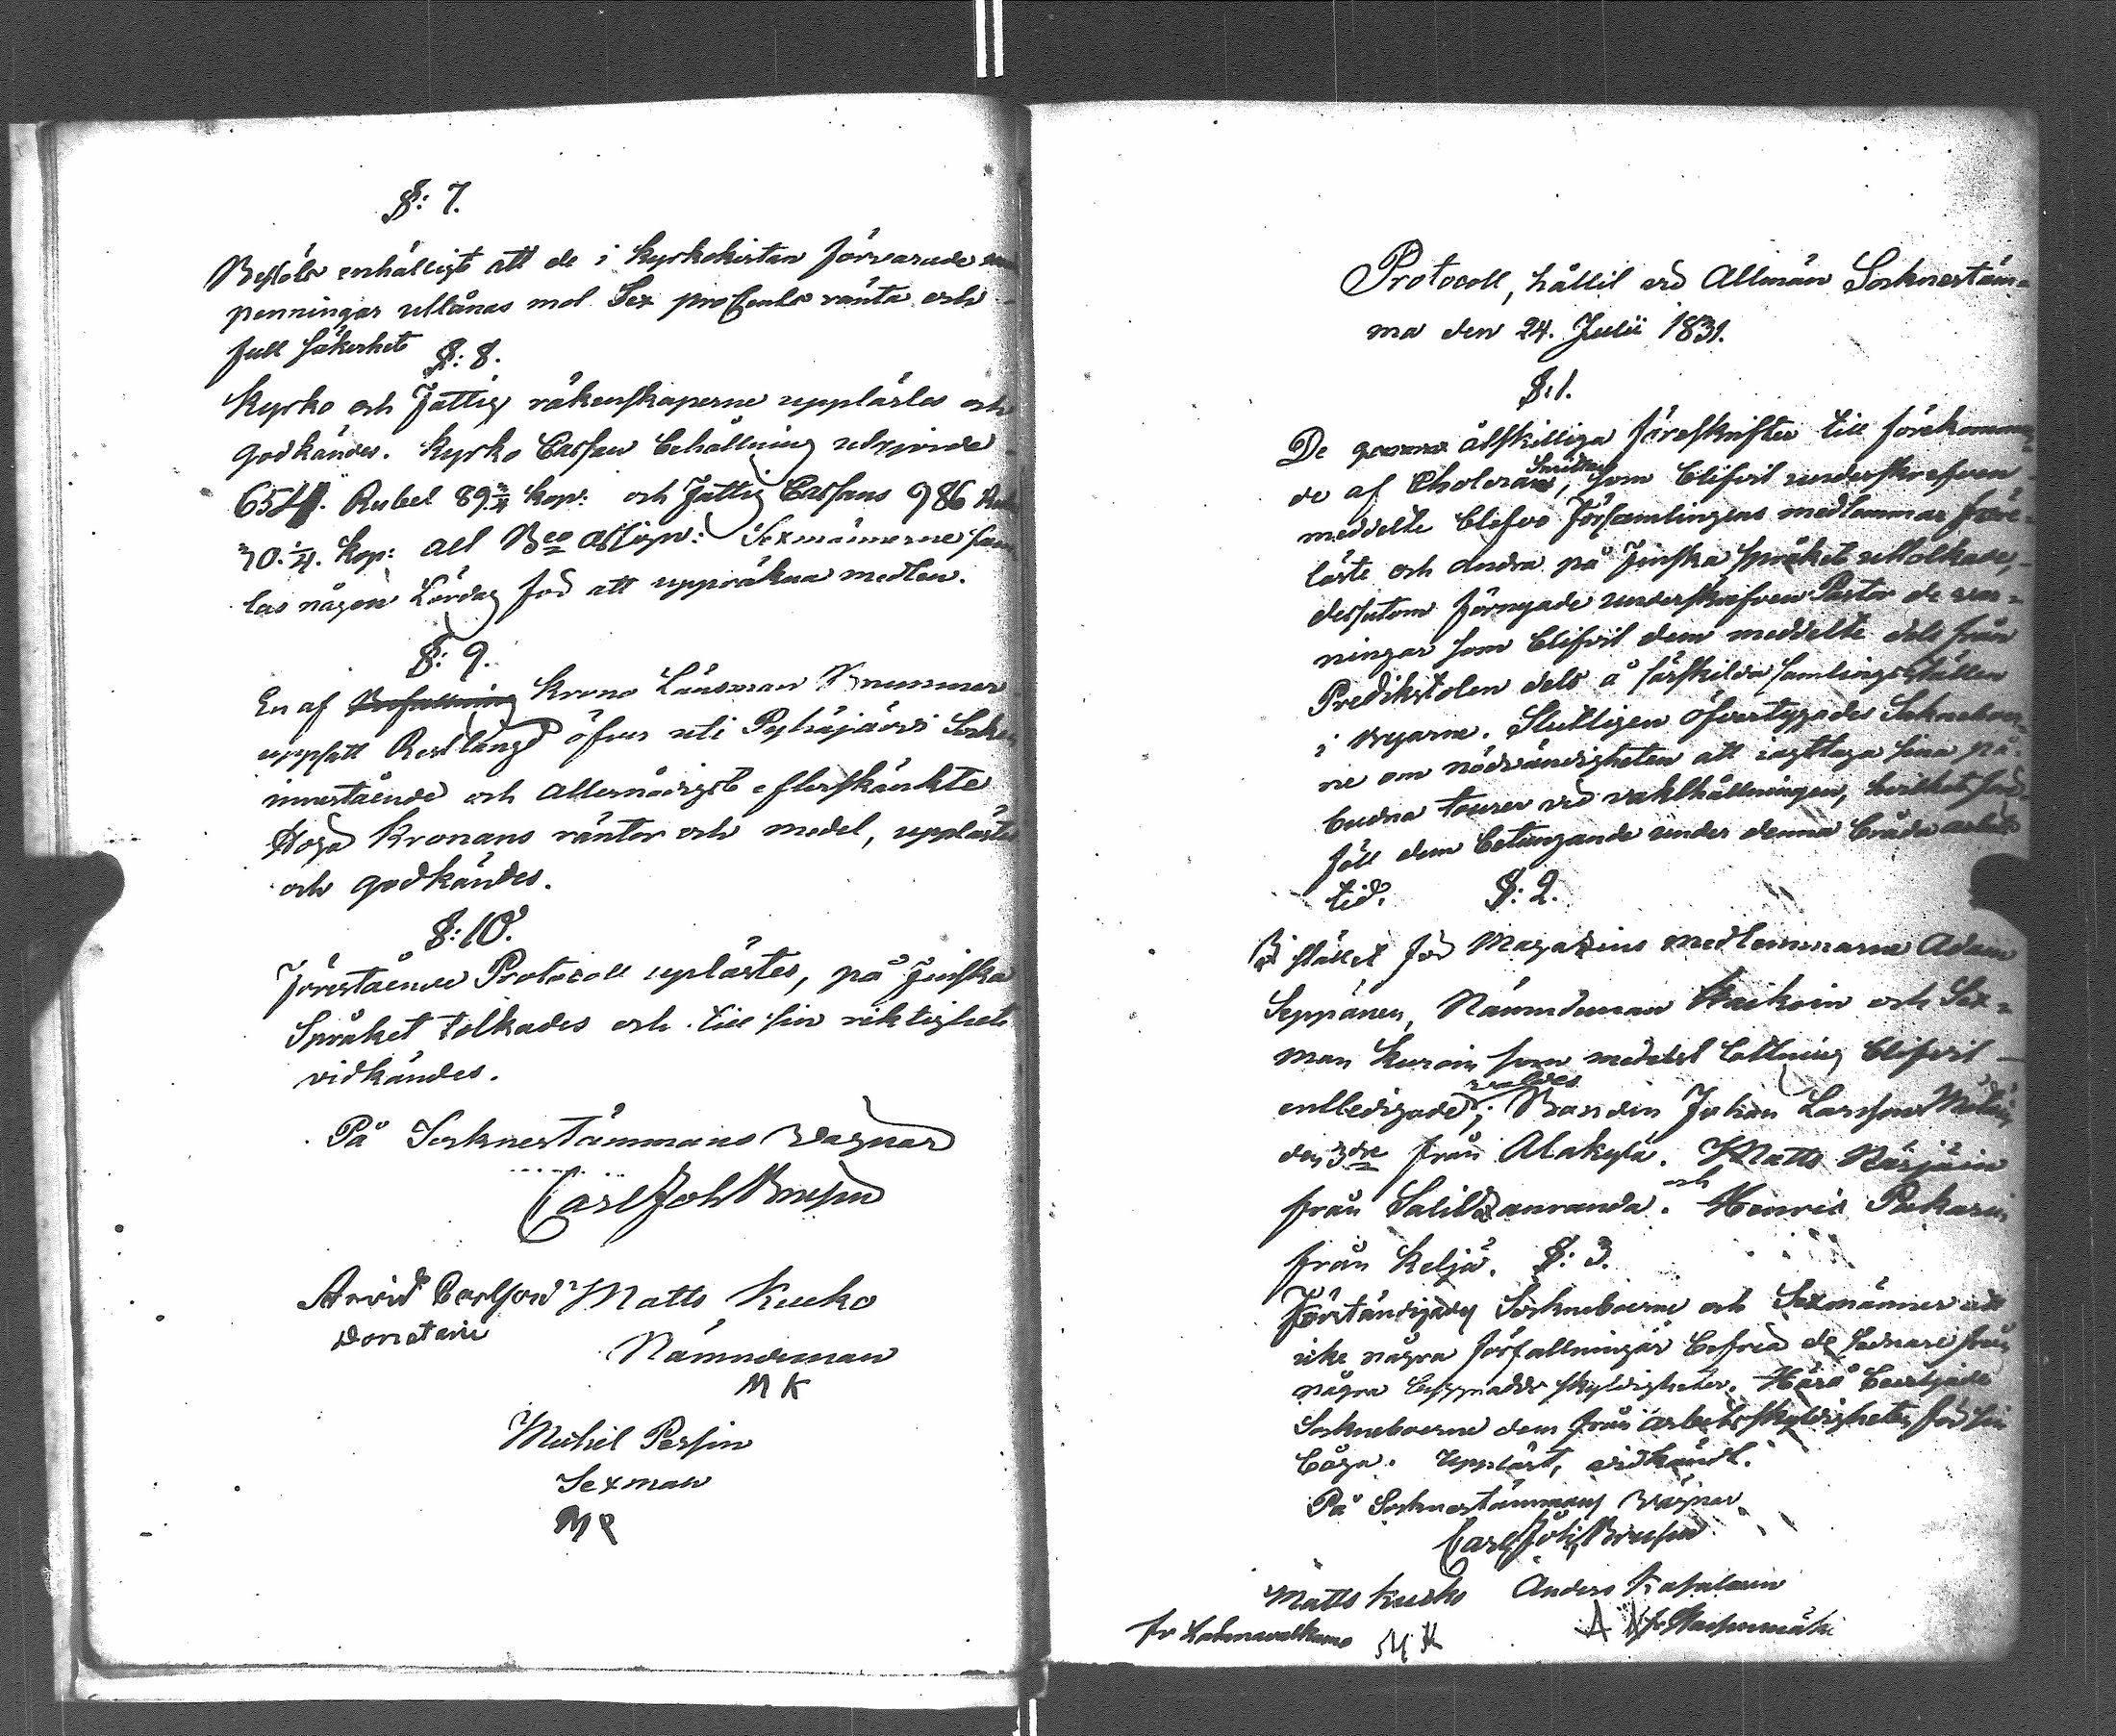 §: 7.
Beslöts enhälligt att de i Kyrkokistan förvarade
penningar utlånas mot Sex proCents ränta och
full säkerhet
§: 8.
Kyrko och Fattig räkenskaperne upplästes och
godkändes. Kyrko Cassan behållning utgjorde
654. Rubel 89 3/4 kop: och Fattig Cassans 986 Rub
30. 1/4. kop: all Bco Assign: Sexmännerne sam
las någon Lördag för att uppräkna medlen.
§: 9.
En af Krono Länsman Brummer
uppsatt Restlängd öfver uti Pyhäjärvi Socken
innestående och allernådigst efterskänkte
Höga Kronans räntor och medel, upplästes
och godkändes.
§: 10.
Förestående Protocoll uplästes, på Finska
Språket tolkades och till sin riktighet
vidkändes.
På Socknestämmans vägnar
Carl Joh
Arvid Carlson Matts Kucko
Nämndeman
M K
Michel Persin
Sexman
M P
Protocoll, hållit vid Allmän Socknestäm=
ma den 24. Julii 1831.
§: 1.
De åtskilliga föreskrifter till förekomman
de af Cholera Smittan, som blifvit underskrefven
meddelte blefvo Församlingens medlemmar före=
läste och andra på Finska språket uttolkade,
dessutom förnyade underskrefven Pastor de var=
ningar som blifvit dem meddelte dels från
Predikstolen dels å särskilda samlingsställen
i byarne. Slutligen öfvertygades Sockneboer
ne om nödvändigheten att iagttaga sina på=
budna tourer vid vakthållningen, hvilket före
föll dem betungande under denna bråda arbets
tid.
§: 2.
I stället för Magazins medlemmarne Adam
Seppänen, Nämndeman och Sex=
man som medelst lottning blifvit
entledigade, valdes Bonden Johan Larsson
den 3dre från Alakylä. Matts Närjäin
från Salitzanranda. och Henric Pukarin
från Keljä. §: 3.
Förständigades Sockneboerne och Sexmänner att
icke några förfallningar befria de sednare från
några byggnads skyldigheter. Härå beviljade
Sockneboerne dem från arbetsskyldigheten för sin
båge. Uppläst, vidkändt.
På Socknestämmans vägnar
Carl Joh
Matts Kucko Anders
fr Lahnavalkama M K A